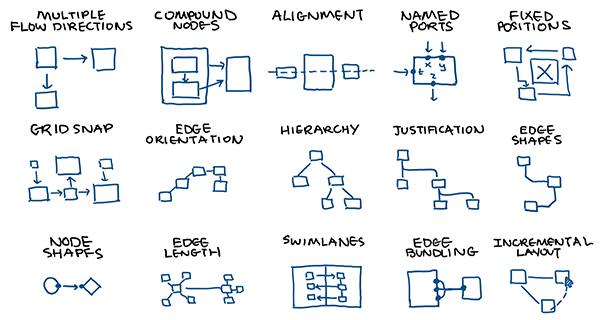 MULTIPLE
FLOW DIRECTIONS
COMPOUND
NODES
ALIGNMENT
NAMED
PORTS
x y
t
z
FIXED
POSITIONS
X
GRID SNAP
EDGE
ORIENTATION
HIERARCHY
JUSTIFICATION
EDGE
SHAPES
NODE
SHAPES
EDGE
LENGTH
SWIMLANES
EDGE
BUNDLING
INCREMENTAL
LAYOUT